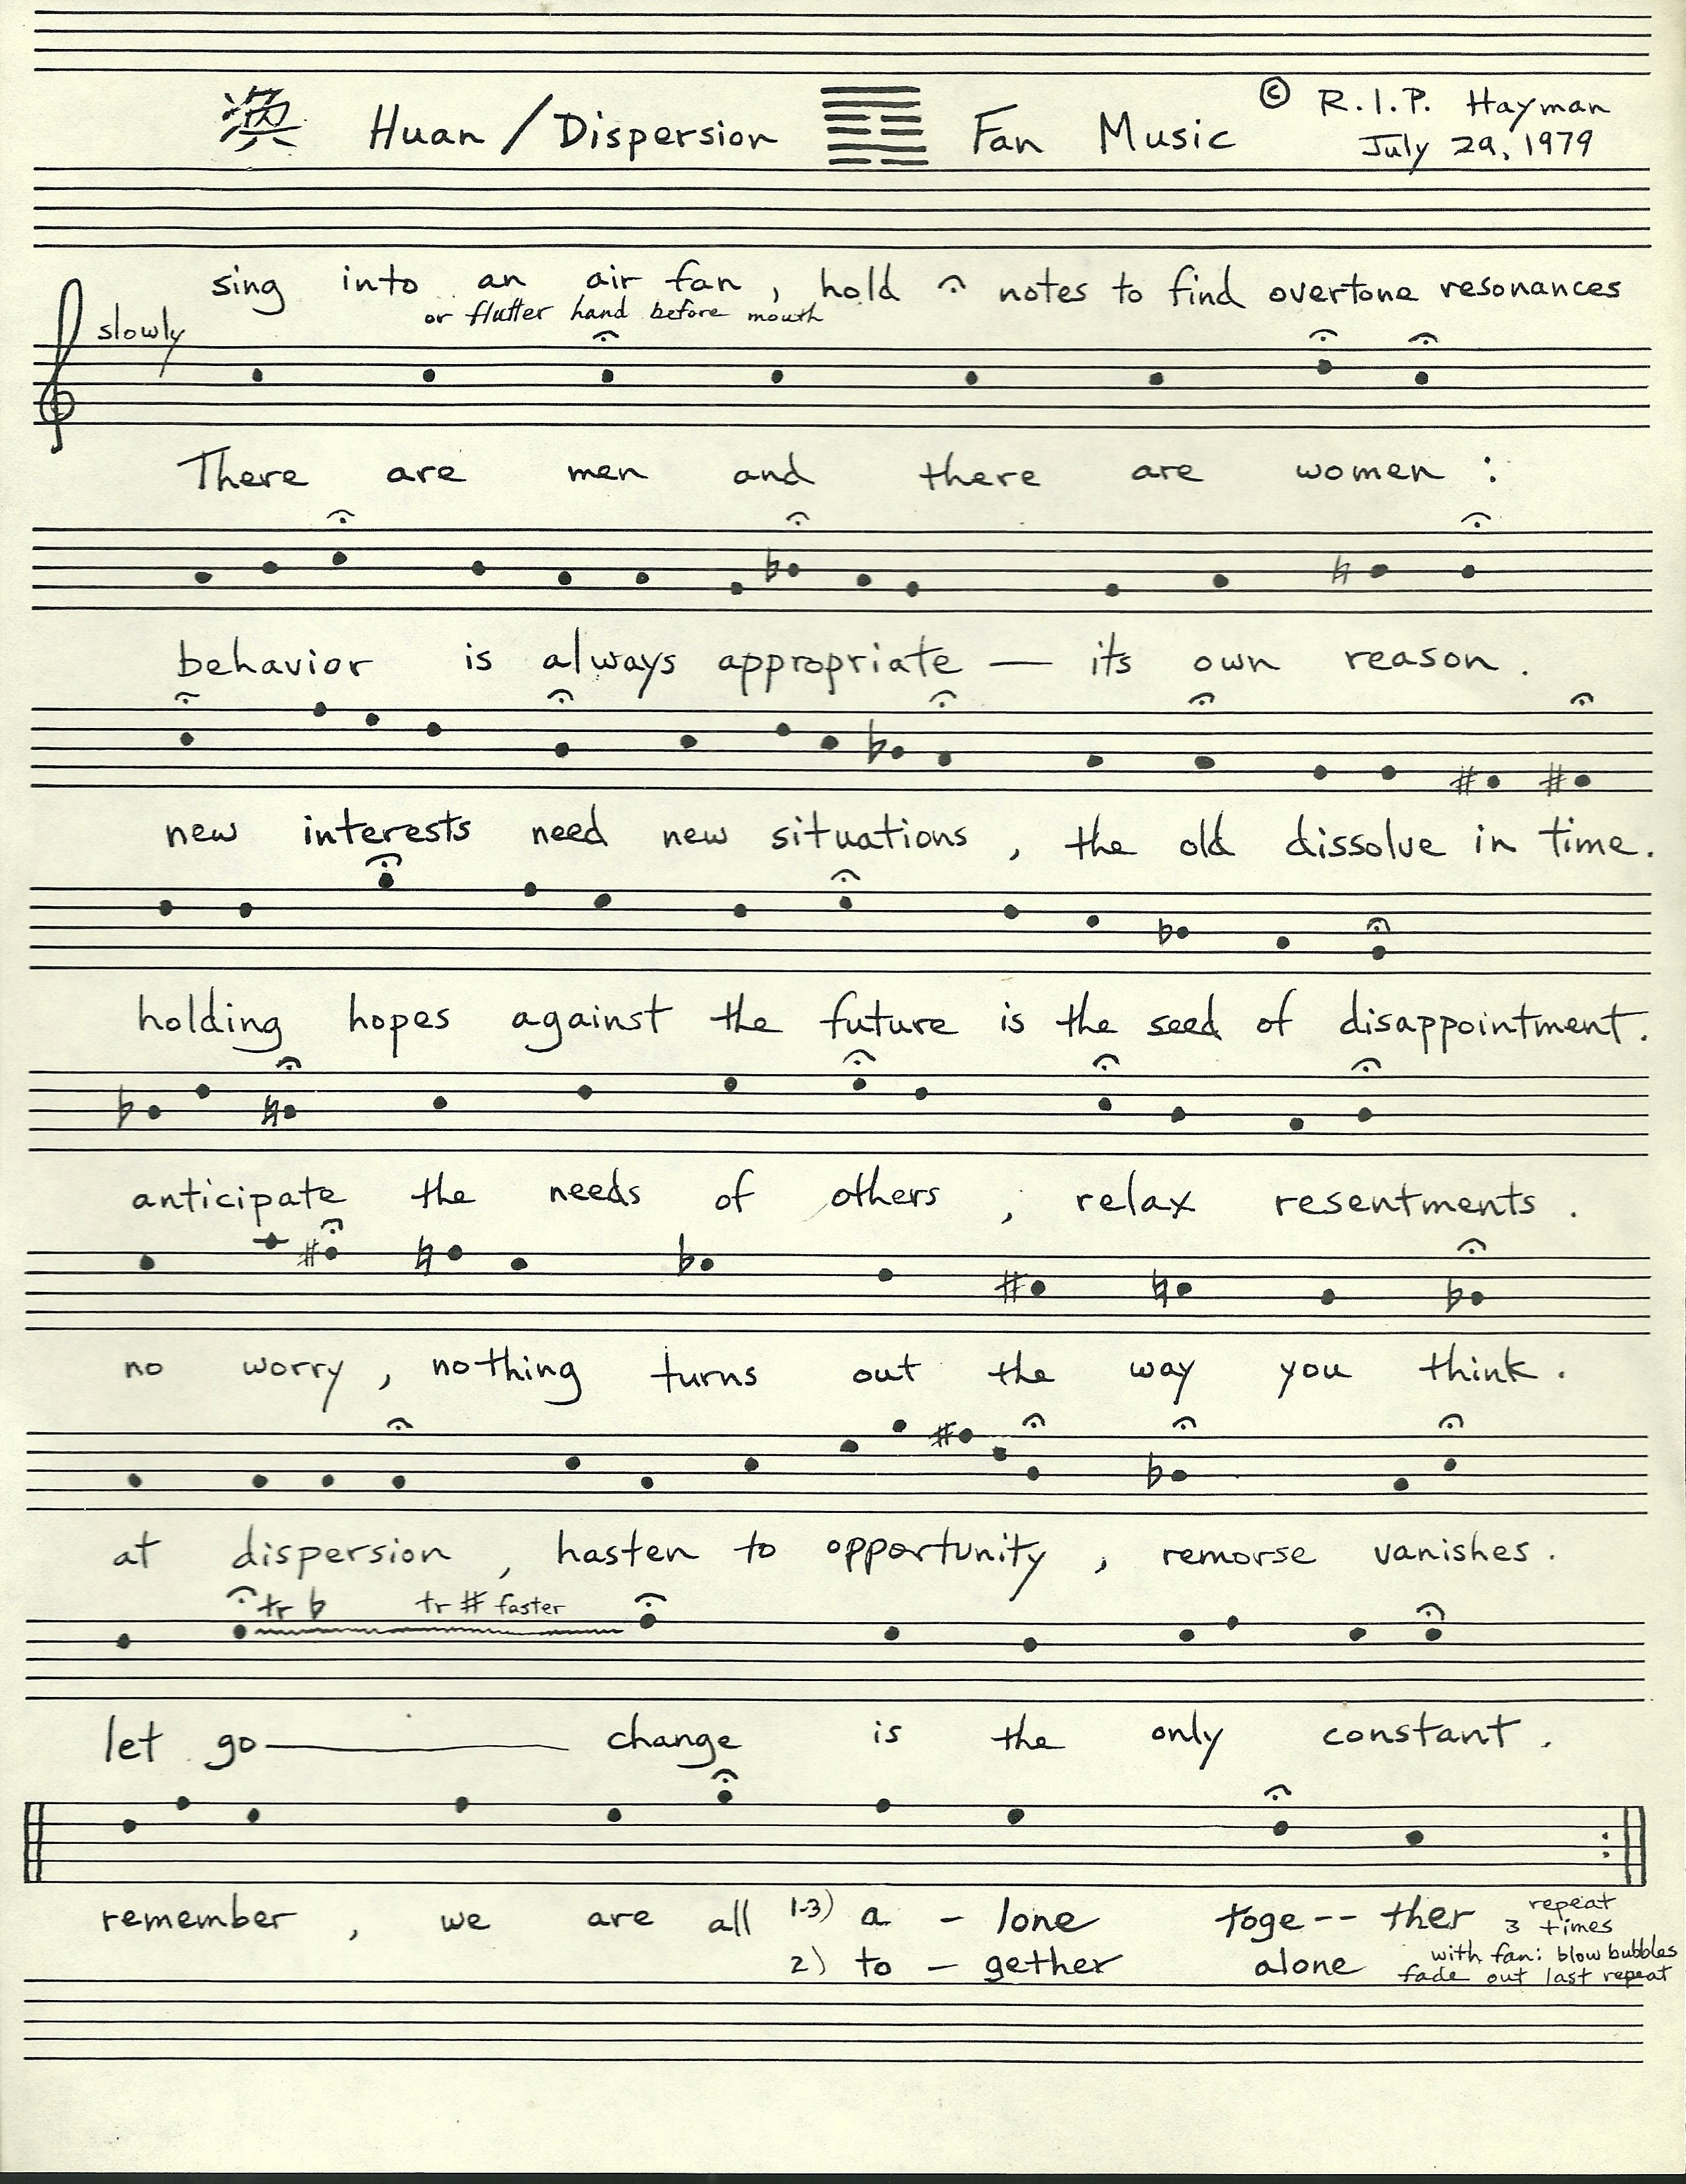 渙 Huan / Dispersion Fan Music © R.I.P. Hayman
July 29, 1979
sing into an air fan, hold 𝄐 notes to find overtone resonances
or flutter hand before mouth
slowly
There are men and there are women :
behavior is always appropriate — its own reason.
new interests need new situations, the old dissolve in time.
holding hopes against the future is the seed of disappointment.
anticipate the needs of others, relax resentments.
no worry, nothing turns out the way you think.
at dispersion, hasten to opportunity, remorse vanishes.
tr ♭ tr # faster
let go — change is the only constant.
remember, we are all 1-3) a - lone toge -- ther repeat 3 times
2) to - gether alone with fan: blow bubbles
fade out last repeat